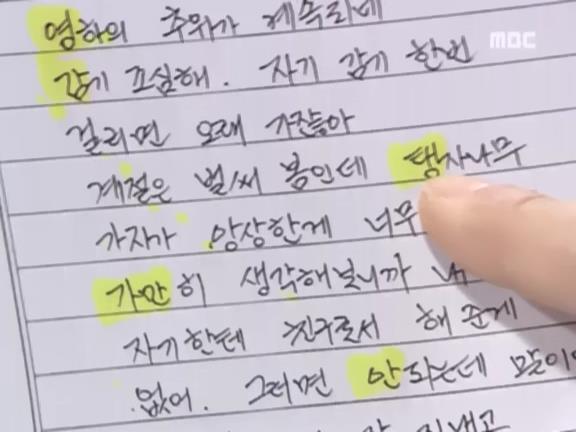 MBC
영하의 추위가 계속된대
감기 조심해. 자기 감기 한번
걸리면 오래 가잖아
계절은 벌써 봄인데 탱자나무
가지가 앙상한게 너무
가만히 생각해보니까 내
자기한테 친구로서 해 준게
없어. 그러면 안되는데 말이
지내고